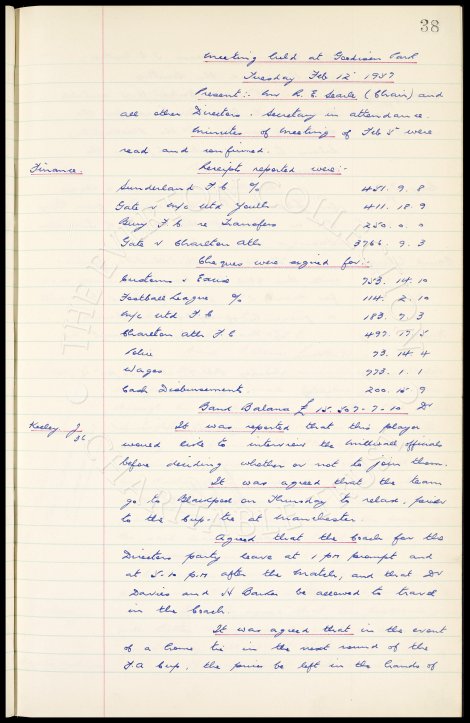 38
Meeting held at Goodison Park
Tuesday Feb 12 1957
Present:- Mr R. E. Searle (Chair) and
all other Directors. Secretary in attendance.
Minutes of Meeting of Feb 5 were
read and confirmed.
Finance. Receipts reported were:-
Sunderland F C % 451. 9. 8
Gate v M/c Utd Youth 411. 18. 9
Bury F.C. re Transfers 250. 0. 0
Gate v Charlton Ath 3766. 9. 3
Cheques were signed for:-
Customs & Excise 753. 14. 10
Football League % 114. 2. 10
M/c Utd F C 183. 7. 3
Charlton Ath F C 497. 17. 5
Police 73. 14. 4
Wages 773. 1. 1
Cash Disbursements. 200. 15. 9
Bank Balance £ 15.507-7-10 Dr
Keeley. J It was reported that this player
would like to interview the Millwall officials
before deciding whether or not to join them.
It was agreed that the team
go to Blackpool on Thursday to relax, prior
to the Cup-tie at Manchester.
Agreed that the Coach for the
Directors party leave at 1 pm prompt and
at 5-10 p.m after the match, and that Dr
Davies and H Barker be allowed to travel
in the Coach.
It was agreed that in the event
of a home tie in the next round of the
F.A Cup, the prices be left in the hands of
THE EVERTON COLLECTION
CHARITABLE